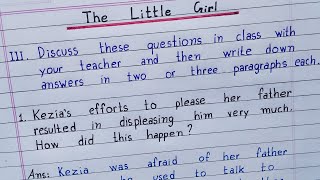 The Little Girl
III. Discuss these questions in class with
your teacher and then write down
answers in two or three paragraphs each.
1. Kezia's efforts to please her father
resulted in displeasing him very much.
How did this happen?
Ans: Kezia was afraid of her father
he used to talk to